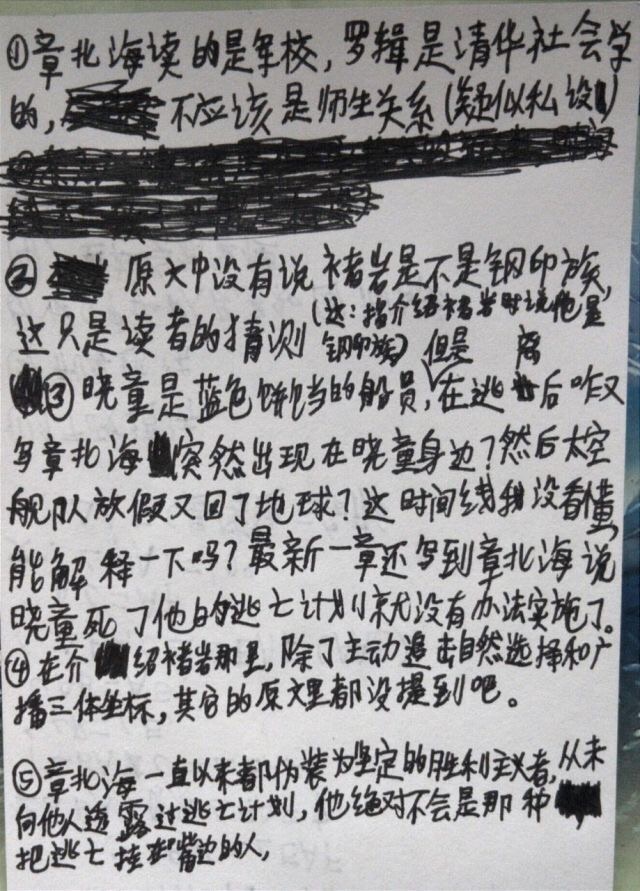 ①章北海读的是军校，罗辑是清华社会学
的，不应该是师生关系(疑似私设)
② 原文中没有说褚岩是不是钢印族，
这只是读者的猜测(这：指介绍褚岩时说他是
钢印族) 但是 离
③晓童是蓝色空当的船员，在逃后咋又
写章北海突然出现在晓童身边？然后太空
舰队放假又回了地球？这时间线我没看懂，
能解释一下吗？最新一章还写到章北海说
晓童死了他的逃亡计划就没有办法实施了。
④在介绍褚岩那里，除了主动追击自然选择和广
播三体坐标，其它的原文里都没提到吧。
⑤章北海一直以来都伪装为坚定的胜利主义者，从未
向他人透露过逃亡计划，他绝对不会是那种
把逃亡挂在嘴边的人，